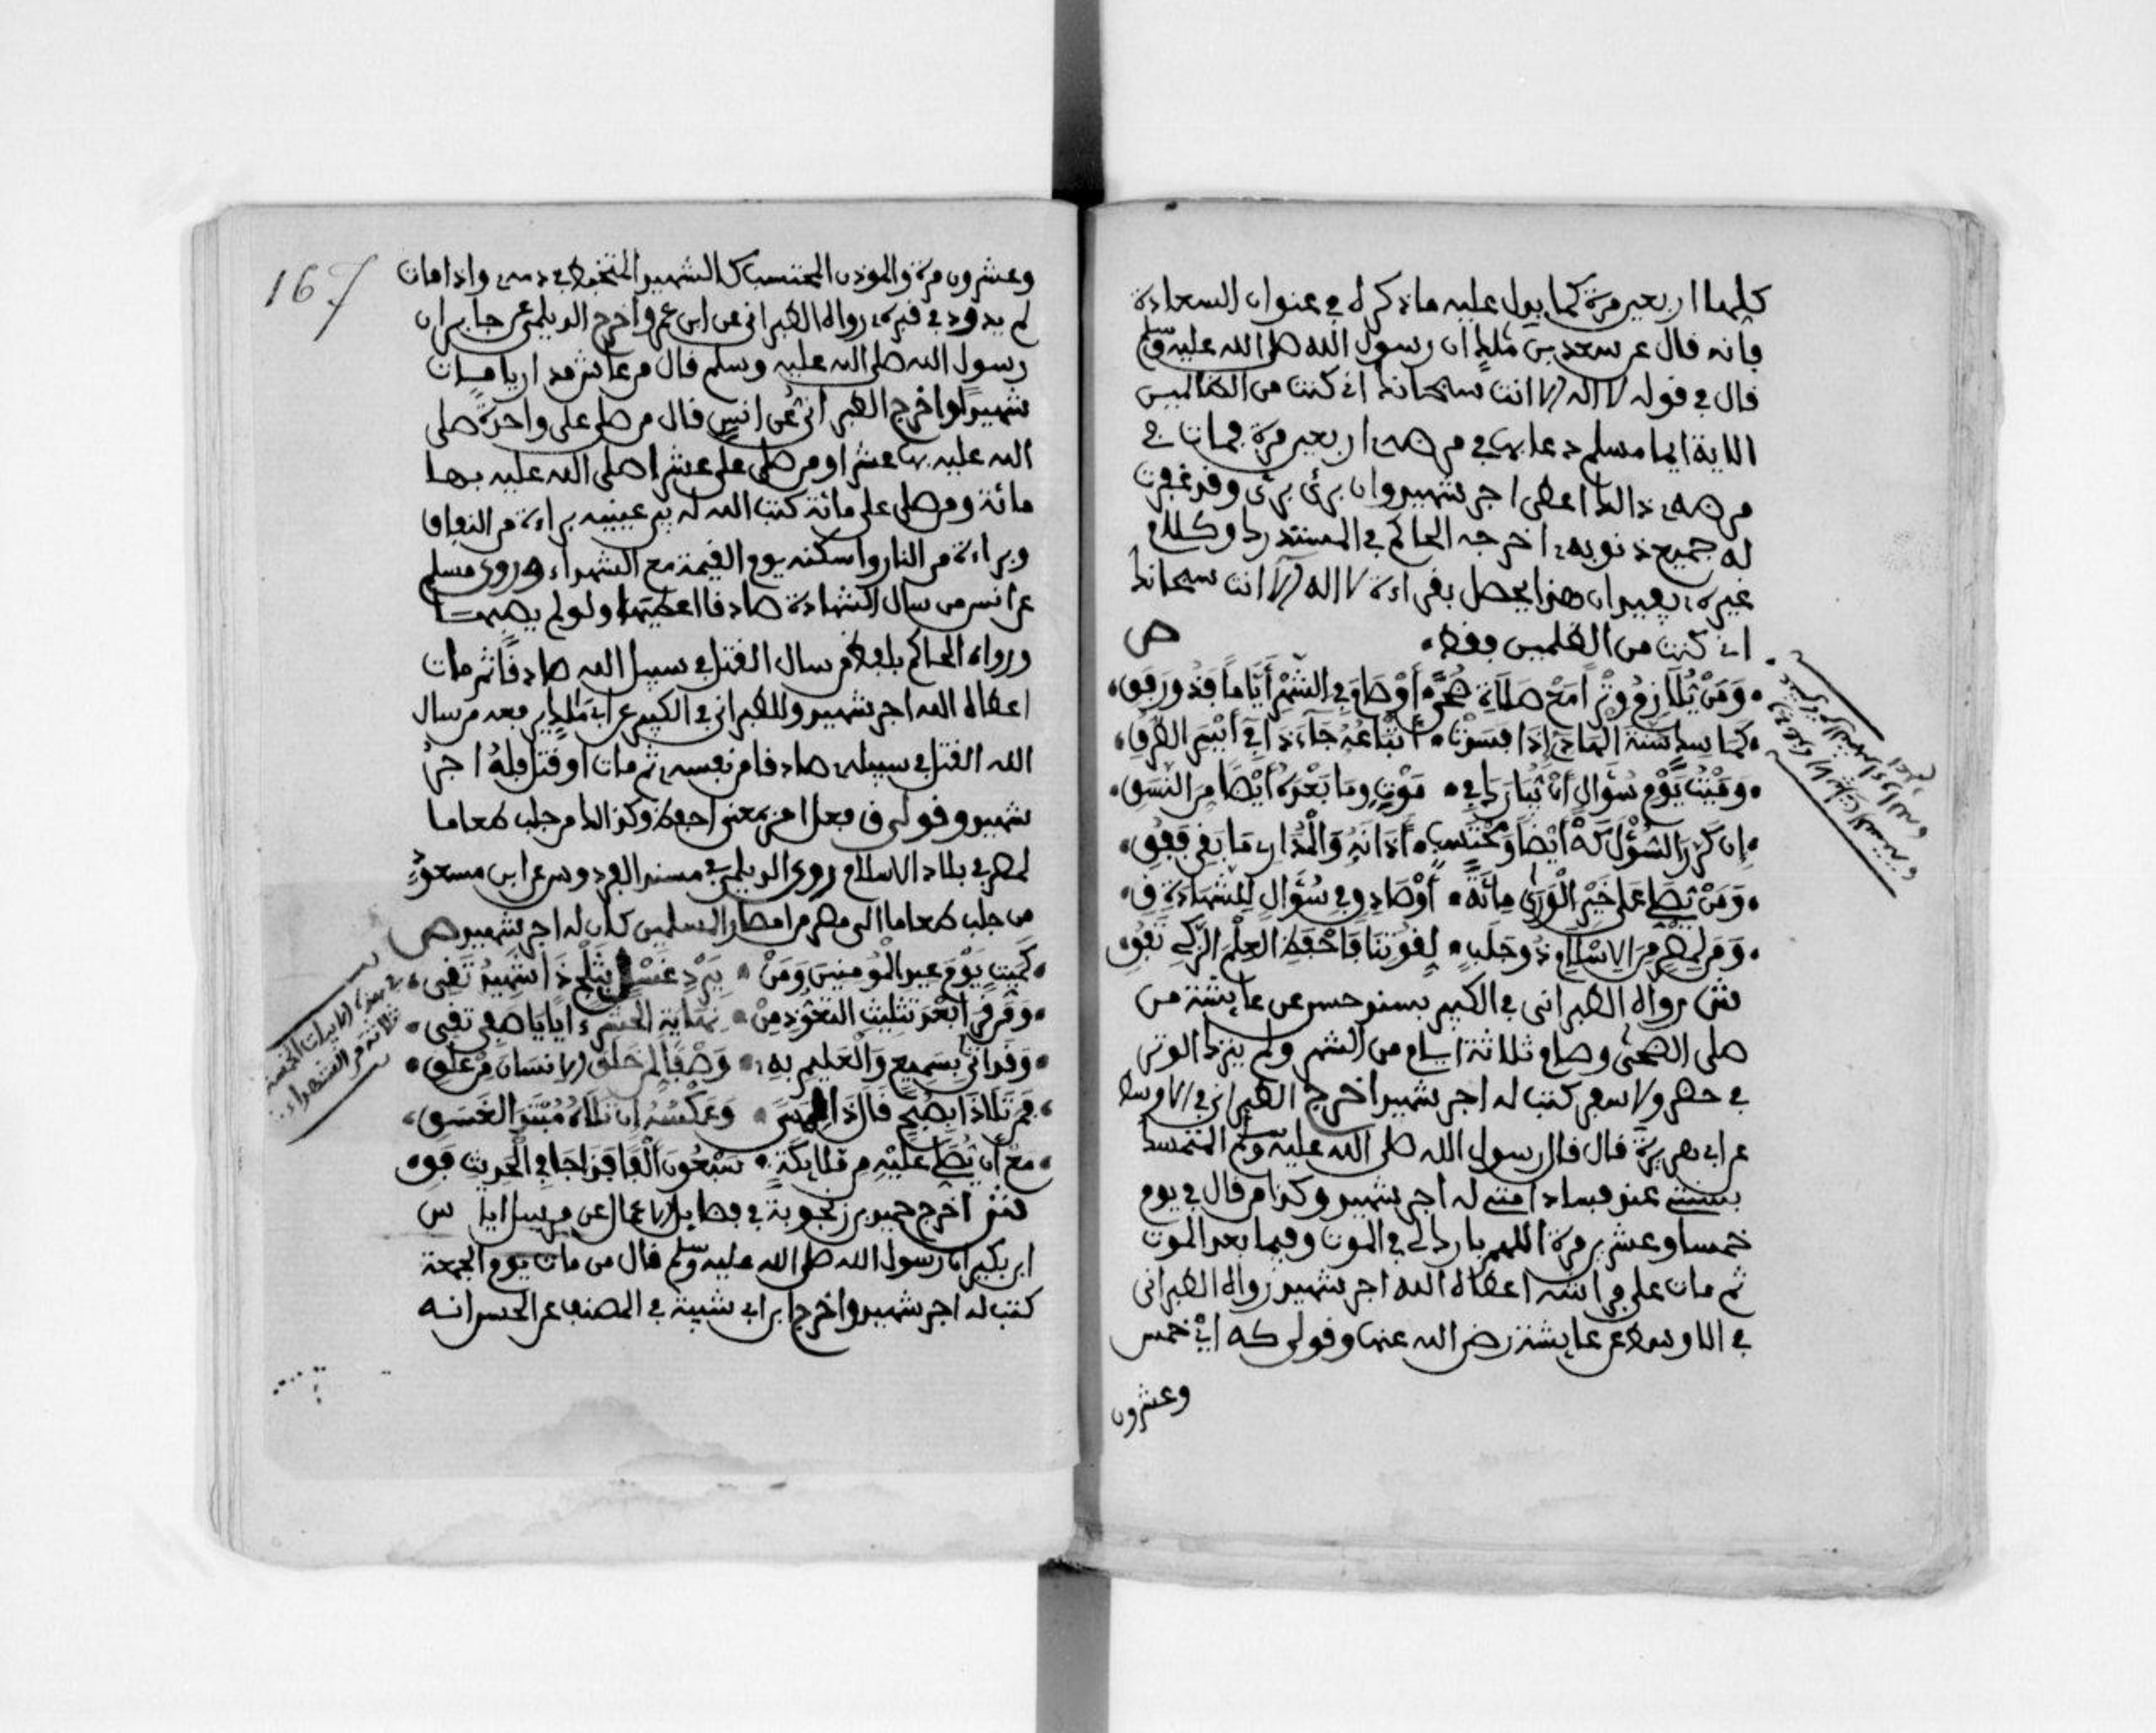 كلها اربعين مرة كما يدل عليه ماذكره في عنوان السعادة
فانه قال عن سعد بن ملك ان رسول الله صلى الله عليه وسلم
قال في قوله لا اله الا انت سبحانك اني كنت من الظالمين
الاية ايما مسلم دعا بها في مرضه اربعين مرة فمات في
مرضه ذالك اعطي اجر شهيد وان برئ برئ وقد غفرت
له جميع ذنوبه اخرجه الحاكم في المستدرك وكلام
غيره يفيد ان هذا يحصل بقراءة لا اله الا انت سبحانك
اني كنت من الظلمين فقط ص
ومن يلازم وترا مع صلاة ضحى او صام في الشهر اياما فذو رفق
كما بسنة الهادي اذا فسدت اتباعه جاء ذا في ايسر الطرق
وميت يوم سؤال ان يبارك في موت وما بعده ايضا من النسق
ان كرر السؤل كه ايضا ومحتسب اذانه والمدار ما بقي فقق
ومن يصل على خير الورى مائة او صادق في سؤال للشهادة ق
ومن لمصر من الاسلام ذو جلب لقوتنا فاحفظ العلم الزكي تفق
فش رواه الطبراني في الكبير بسند حسن عن عايشة من
صلى الضحى وصام ثلاثة ايام من الشهر ولم يترك الوتر
في حضر ولا سفر كتب له اجر شهيد اخرج الطبراني في الاوسط
عن ابي هريرة قال قال رسول الله صلى الله عليه وسلم المتمسك
بسنتي عند فساد امتي له اجر شهيد وكذا من قال في يوم
خمسا وعشرين مرة اللهم بارك لي في الموت وفيما بعد الموت
ثم مات على فراشه اعطاه الله اجر شهيد رواه الطبراني
في الاوسط عن عايشة رضي الله عنها وقولي كه اي خمس
وعشرون
167
وعشرون مرة والموذن المحتسب كالشهيد المتخبط في دمه واذا مات
لم يدود في قبره رواه الطبراني عن ابن عمر واخرج الديلمي عن جابر ان
رسول الله صلى الله عليه وسلم قال من عاش مداريا مات
شهيدا واخرج الطبراني عن انس قال من صلى علي واحدة صلى
الله عليه بها عشرا ومن صلى علي عشرا صلى الله عليه بها
مائة ومن صلى علي مائة كتب الله له بين عينيه براءة من النفاق
وبراءة من النار واسكنه يوم القيمة مع الشهداء وروى مسلم
عن انس من سال الشهادة صادقا اعطيها ولو لم يصبها
ورواه الحاكم بلفظ من سال القتل في سبيل الله صادقا ثم مات
اعطاه الله اجر شهيد وللطبراني في الكبير عن ابي ملك يرفعه من سال
الله القتل في سبيله صادقا من نفسه ثم مات او قتل فله اجر
شهيد وقولي ق فعل امر بمعنى احفظ وكذالك من جلب طعاما
لمصر في بلاد الاسلام روى الديلمي في مسند الفردوس عن ابن مسعود
من جلب طعاما الى مصر من امصار المسلمين كان له اجر شهيد ص
كميت يوم عيد المومنين ومن ببرد غسل بثلج ذا شهيد تقي
ومن قرا بعد تثليث التعوذ من نهاية الحشر اياتا صفي تقي
وقد اتى بسميع والعليم به وصفا لمن خلق الانسان من علق
فمن تلا ذا بصبح قال ذا المسا وعكسه ان تلاه مبتدا الغسق
مع ان يصل عليه من ملايكة سبعون الفا فذا جا في الحديث فق
فش اخرج حميد بن زنجوية في فضايل الاعمال عن مرسل اياس
ابن بكير ان رسول الله صلى الله عليه وسلم قال من مات يوم الجمعة
كتب له اجر شهيد واخرج ابن ابي شيبة في المصنف عن الحسن انه
في هذه الابيات الخمسة
ثلاثة من الشهداء